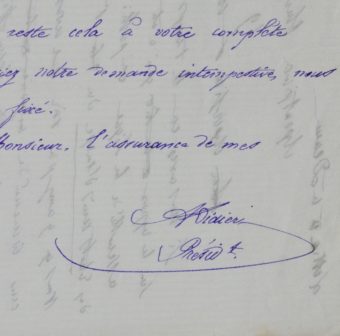 reste cela à votre complète
notre demande intempestive, nous
fixé.
Monsieur, l'assurance de mes
Didier
Présidt.